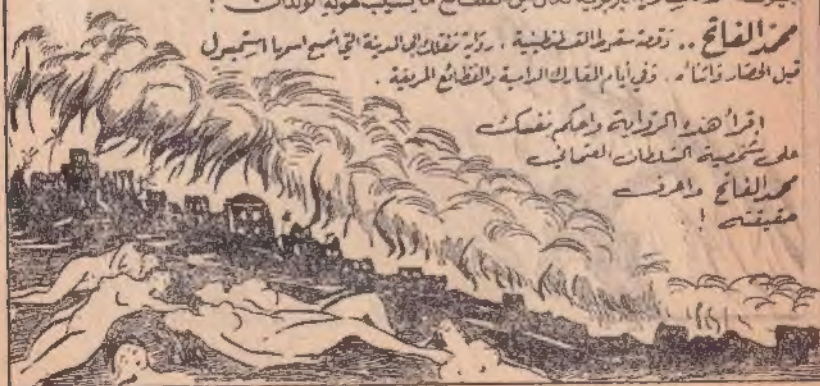 محمد الفاتح .. وقصة سقوط القسطنطينية ، رواية تنقلك إلى المدينة التي أصبح اسمها استمبول
قبل الحصار وأثناءه . وفي أيام المعارك الدامية والفظائع المريعة .
إقرأ هذه الرواية واحكم بنفسك
على شخصية السلطان العثماني
محمد الفاتح واعرف
حقيقته !